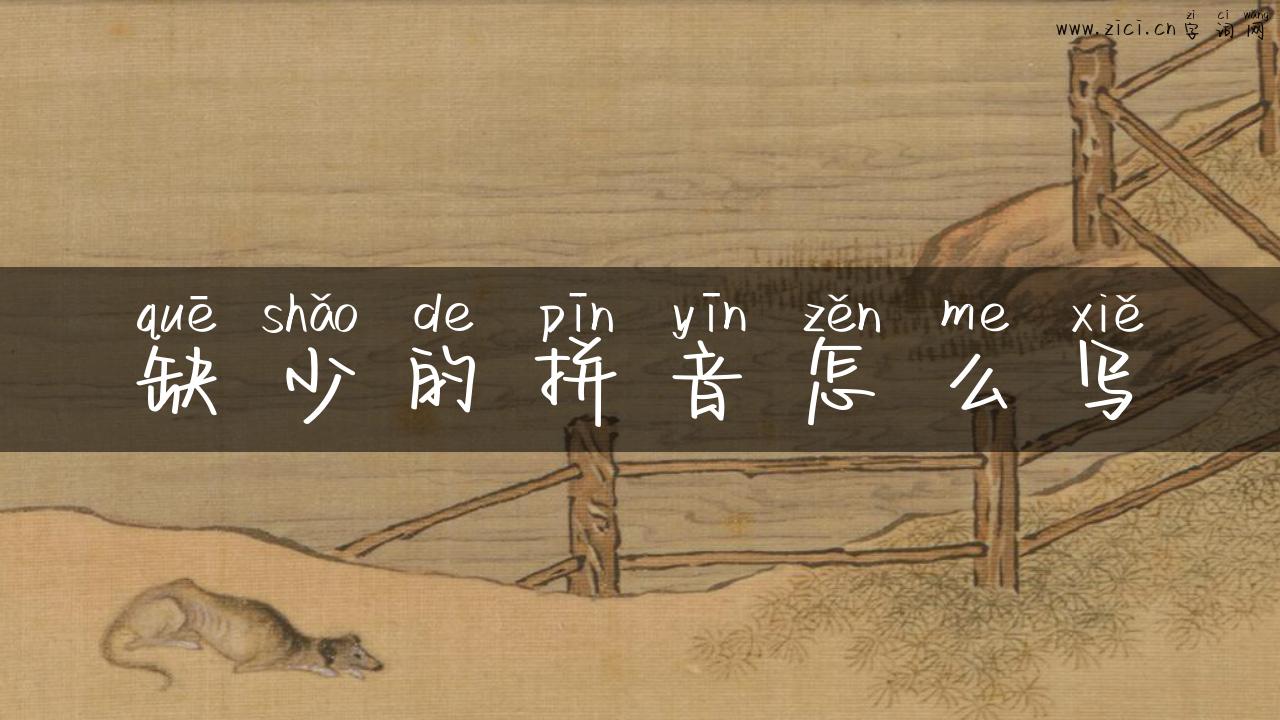 zi ci wang
www.zici.cn字词网
quē shǎo de pīn yīn zěn me xiě
缺少的拼音怎么写